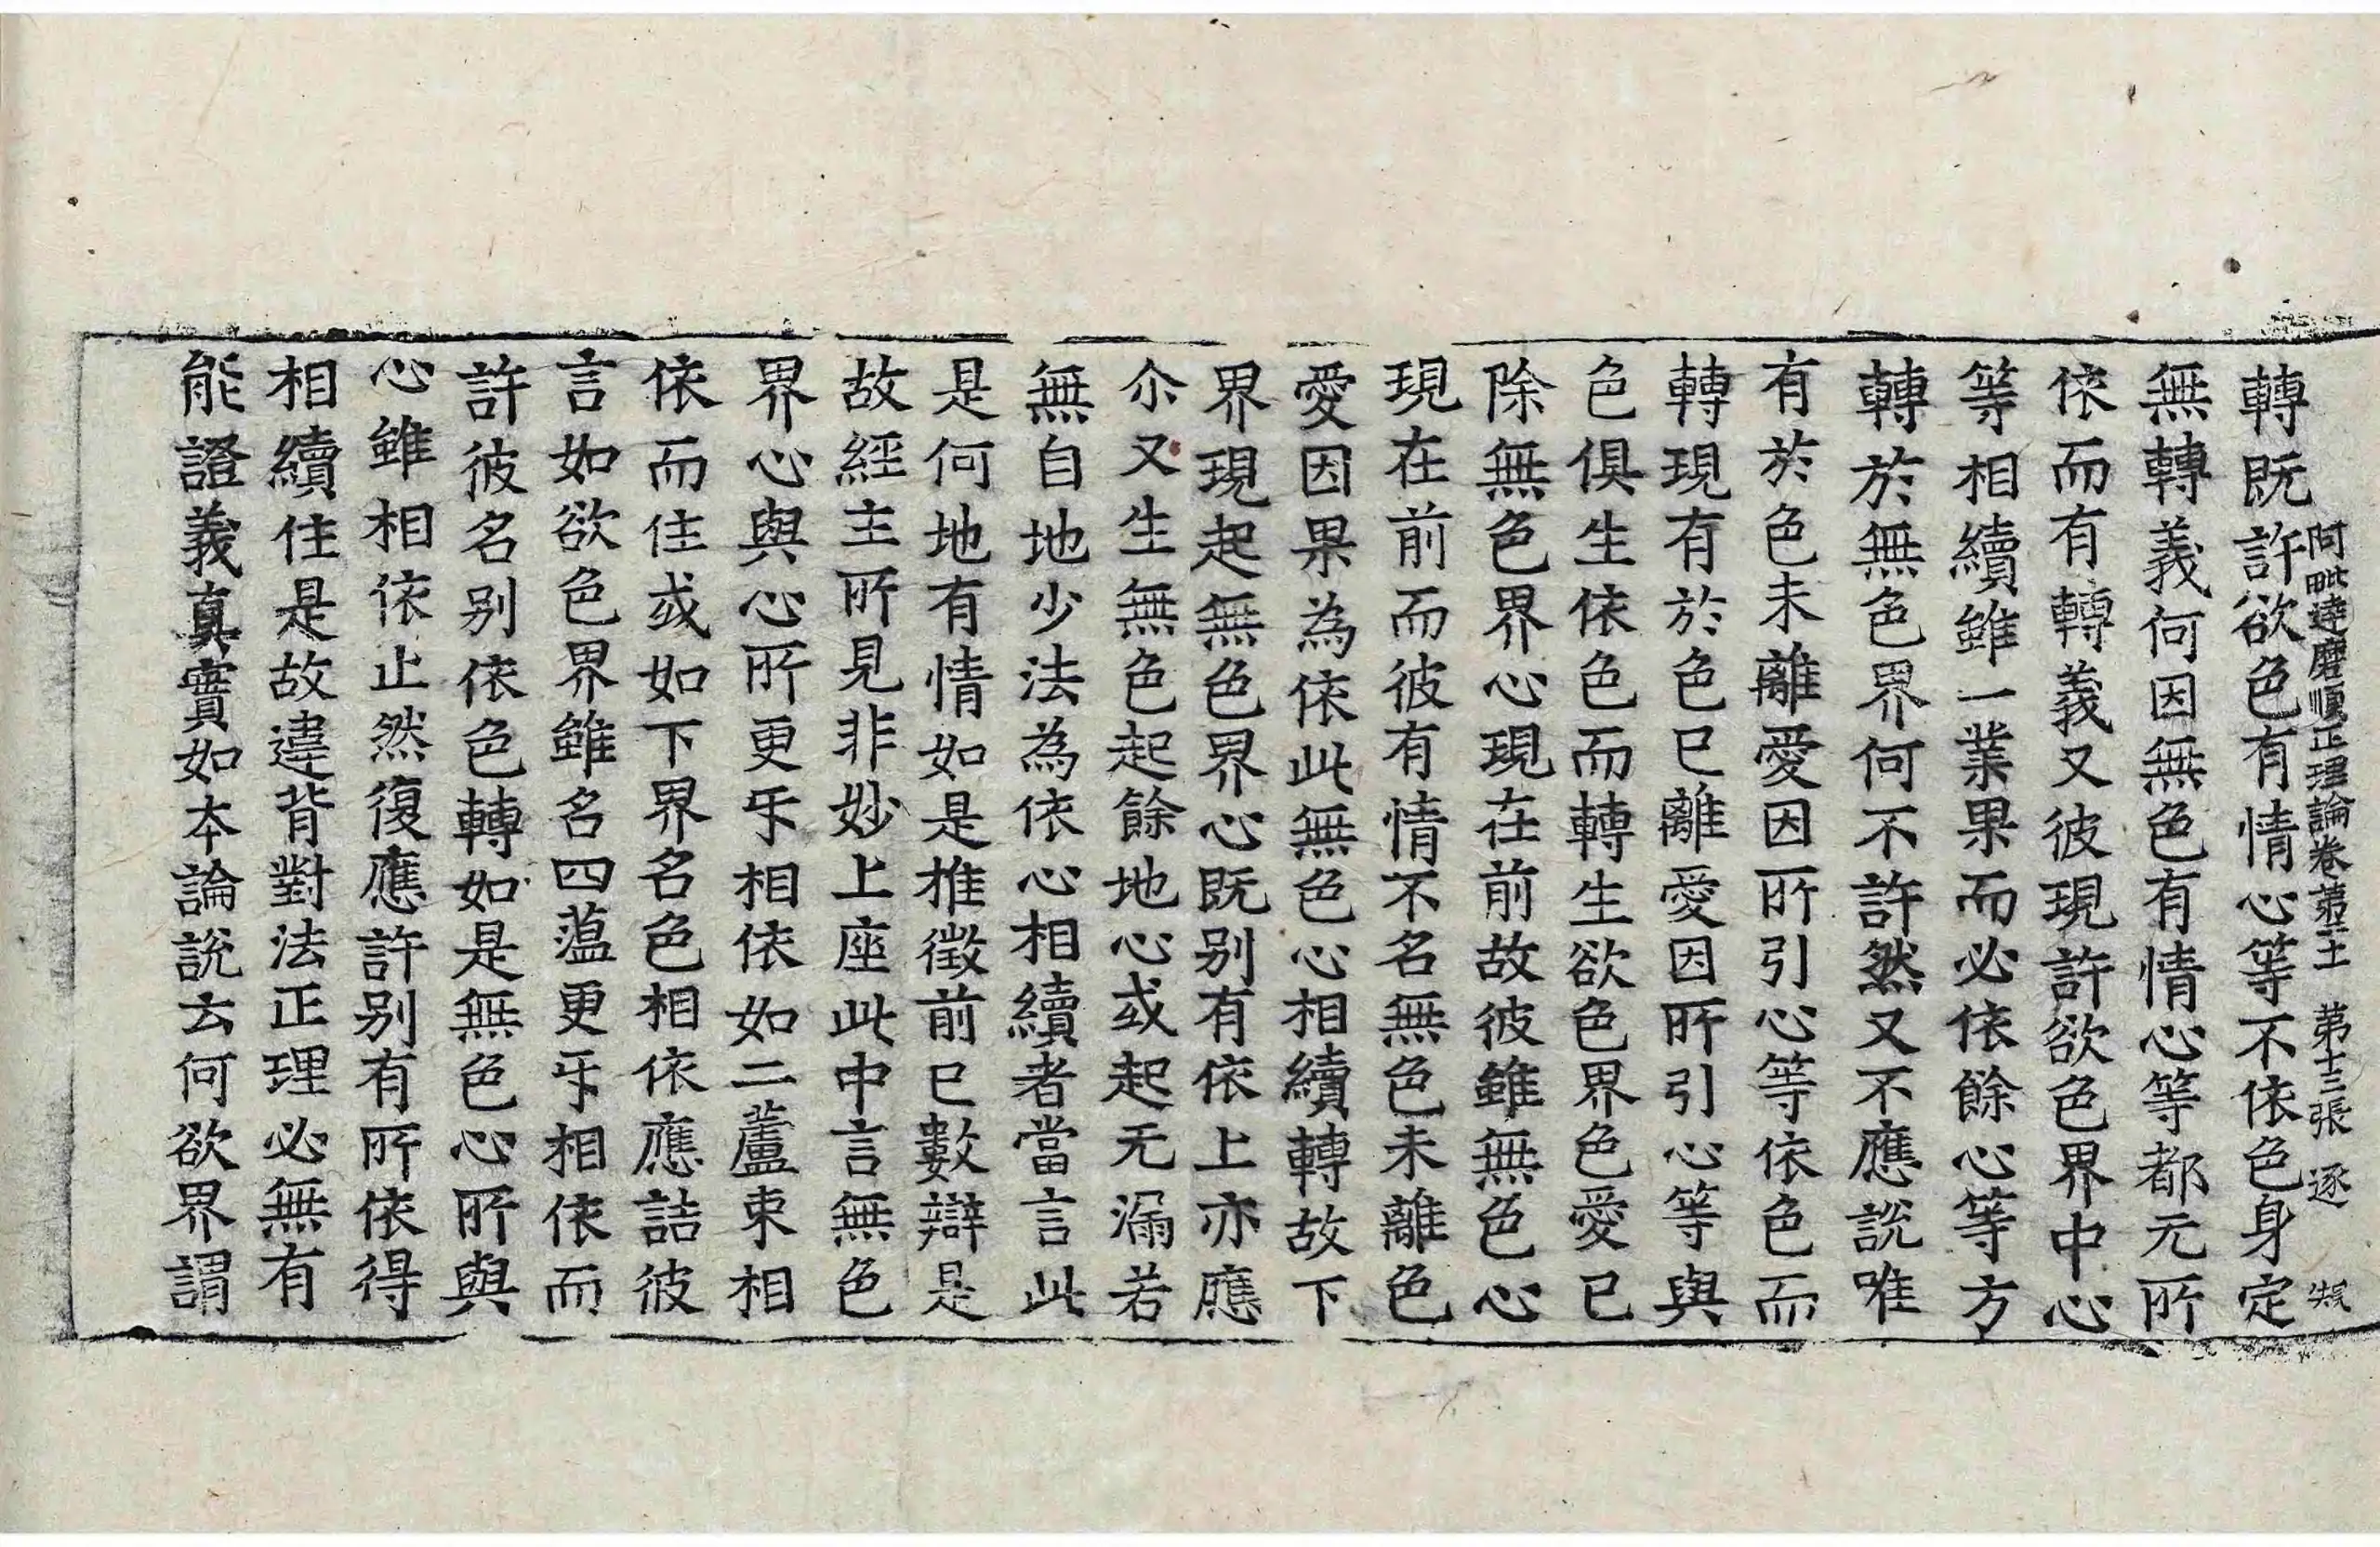 阿毗達磨順正理論卷第二十一 第十三張 逐
轉既許欲色有情心等不依色身定
無轉義何因無色有情心等都无所
依而有轉義又彼現許欲色界中心
等相續雖一業果而必依餘心等方
轉於無色界何不許然又不應說唯
有於色未離愛因所引心等依色而
轉現有於色已離愛因所引心等與
色俱生依色而轉生欲色界色愛已
除無色界心現在前故彼雖無色心
現在前而彼有情不名無色未離色
愛因果為依此無色心相續轉故下
界現起無色界心既别有依上亦應
尒又生無色起餘地心或起无漏若
無自地少法為依心相續者當言此
是何地有情如是推徵前已數辯是
故經主所見非妙上座此中言無色
界心與心所更㸦相依如二蘆束相
依而住或如下界名色相依應詰彼
言如欲色界雖名四蘊更㸦相依而
許彼名别依色轉如是無色心所與
心雖相依止然復應許别有所依得
相續住是故違背對法正理必無有
能證義真實如本論說云何欲界謂